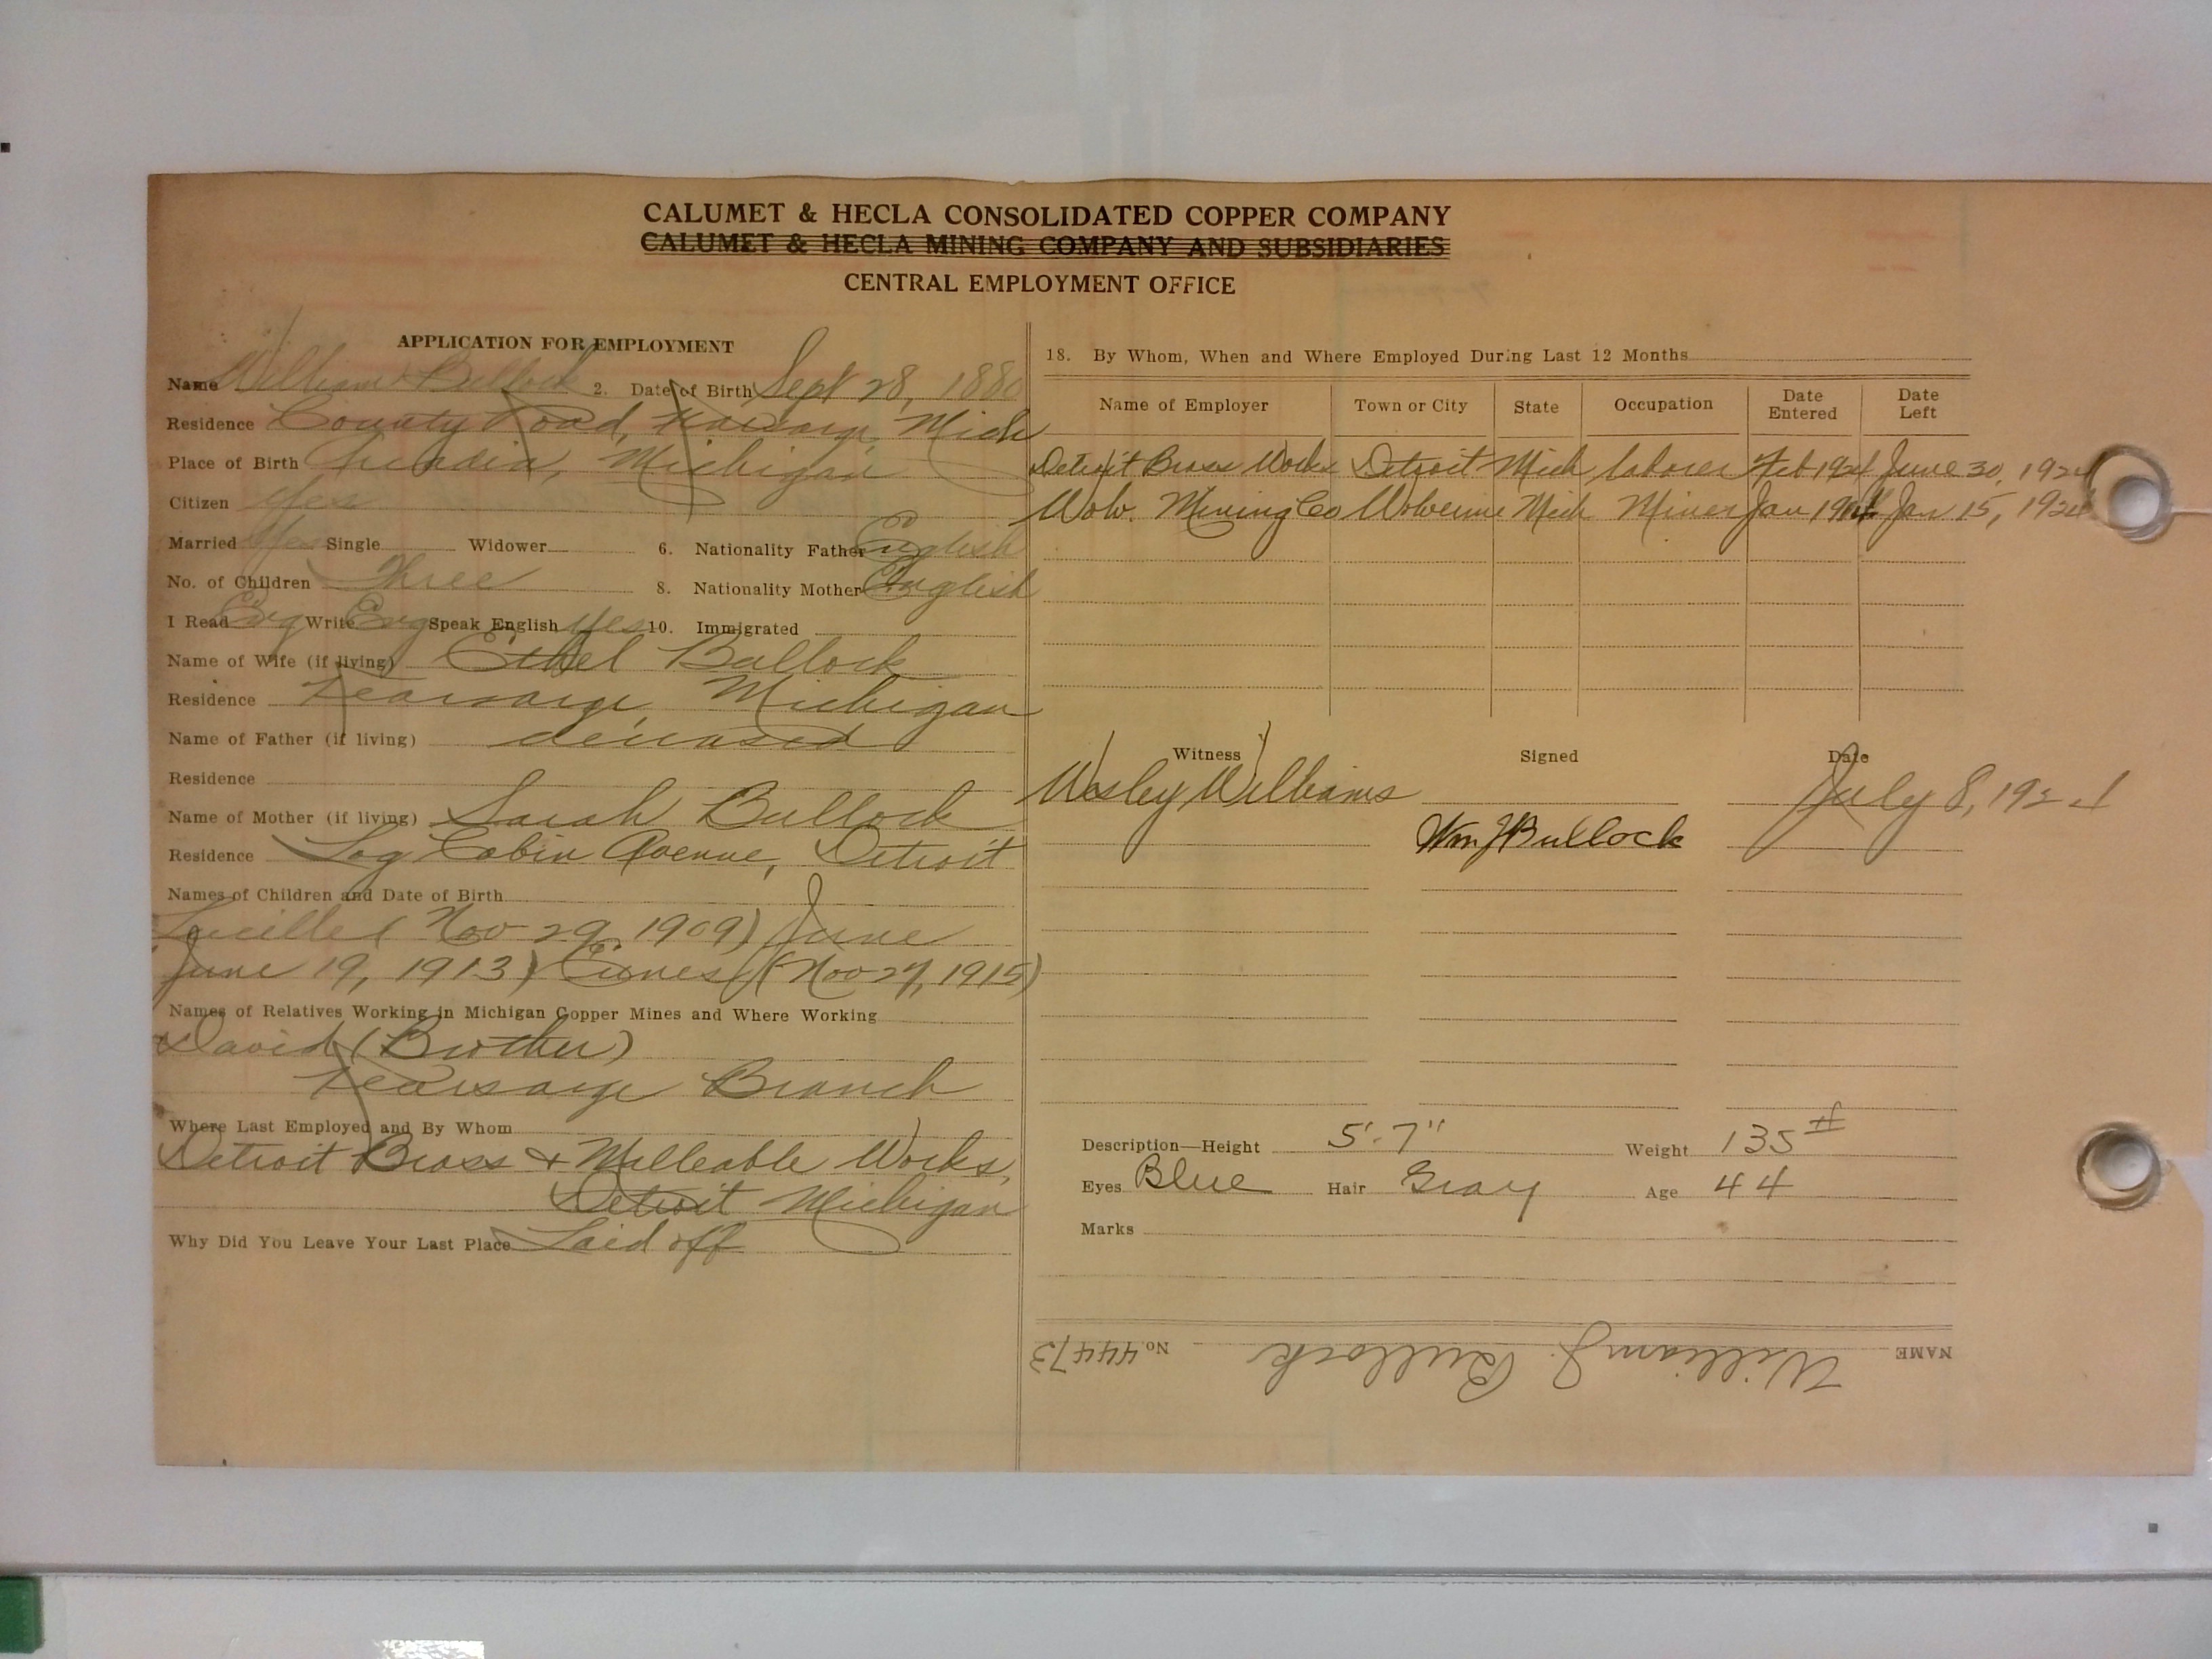 CALUMET & HECLA CONSOLIDATED COPPER COMPANY
CALUMET & HECLA MINING COMPANY AND SUBSIDIARIES
CENTRAL EMPLOYMENT OFFICE
APPLICATION FOR EMPLOYMENT
Name William Bullock 2. Date of Birth Sept 28, 1880
Residence County Road, Kearsarge, Mich
Place of Birth Michigan
Citizen Yes
Married Yes Single Widower 6. Nationality Father English
No. of Children Three 8. Nationality Mother English
I Read Eng Write Eng Speak English Yes 10. Immigrated
Name of Wife (if living) Ethel Bullock
Residence Kearsarge, Michigan
Name of Father (if living) deceased
Residence
Name of Mother (if living) Sarah Bullock
Residence Log Cabin Avenue, Detroit
Names of Children and Date of Birth
Lucille (Nov 29, 1909) June
June 19, 1913) (Nov 27, 1915)
Names of Relatives Working in Michigan Copper Mines and Where Working
David (Brother)
Kearsarge Branch
Where Last Employed and By Whom
Detroit Brass & Malleable Works,
Detroit Michigan
Why Did You Leave Your Last Place Laid off
18. By Whom, When and Where Employed During Last 12 Months
Name of Employer Town or City State Occupation Date Entered Date Left
Detroit Brass Works Detroit Mich laborer Feb 1924 June 30, 1924
Wolv. Mining Co Wolverine Mich Miner Jan Jan 15, 1924
Witness Signed Date
Wesley Williams July 8, 1924
Wm J Bullock
Description—Height 5'-7" Weight 135 #
Eyes Blue Hair Gray Age 44
Marks
NAME William J. Bullock No. 44473